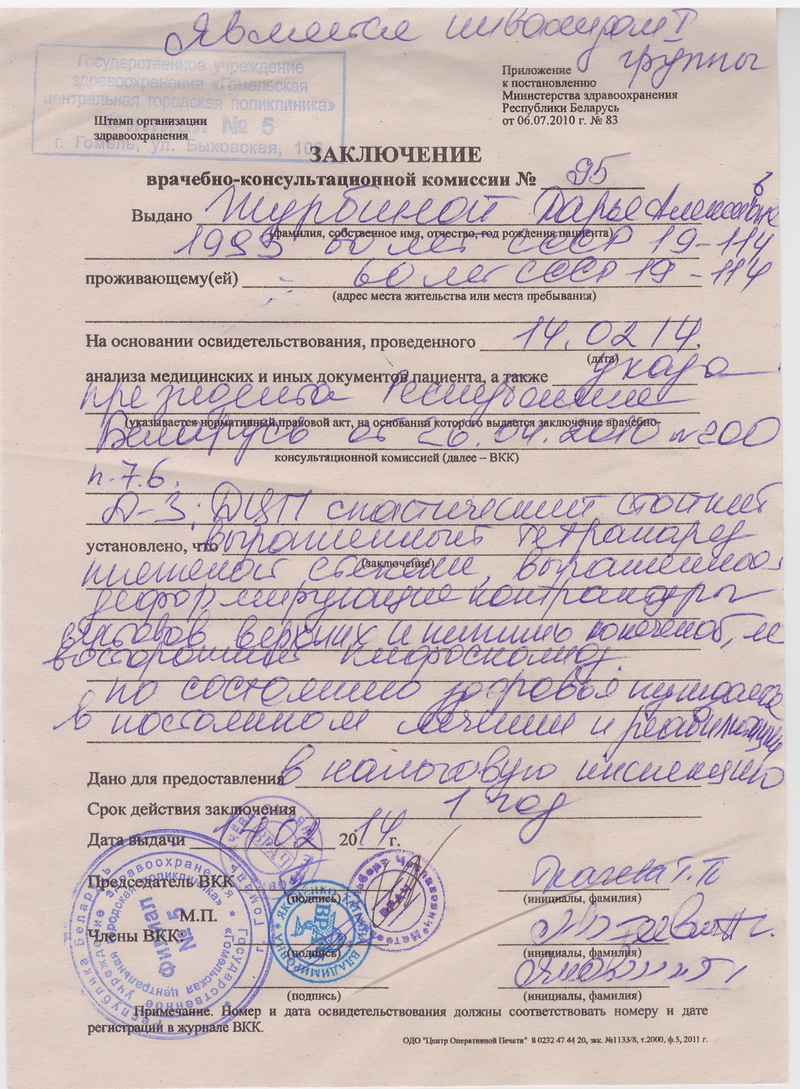 Является инвалидом I
группы
Государственное учреждение
здравоохранения «Гомельская
центральная городская поликлиника»
Филиал № 5
г. Гомель, ул. Быховская, 108
Штамп организации
здравоохранения
Приложение
к постановлению
Министерства здравоохранения
Республики Беларусь
от 06.07.2010 г. № 83
ЗАКЛЮЧЕНИЕ
врачебно-консультационной комиссии № 95
Выдано Журбиной Дарье
(фамилия, собственное имя, отчество, год рождения пациента)
1993 60 лет СССР 19-114
проживающему(ей) 60 лет СССР 19-114
(адрес места жительства или места пребывания)
На основании освидетельствования, проведенного 14.02 14.
(дата)
анализа медицинских и иных документов пациента, а также указа
президента Республики
(указывается нормативный правовой акт, на основании которого выдается заключение врачебно-
Беларусь от 26.04.2010 №200
консультационной комиссией (далее – ВКК)
п. 7.6.
Д-З: ДЦП спастический
установлено, что выраженный тетрапарез
(заключение)
степени, выраженные
деформирующие контрактуры
суставов верхних и нижних
кифосколиоз.
по состоянию здоровья
в постоянном лечении и реабилитации
Дано для предоставления в налоговую инспекцию
Срок действия заключения 1 год
Дата выдачи 14.02 2014 г.
Председатель ВКК
(подпись)
(инициалы, фамилия)
М.П.
Члены ВКК:
(подпись)
(инициалы, фамилия)
(подпись)
(инициалы, фамилия)
Филиал
№ 5
ВРАЧ
Примечание. Номер и дата освидетельствования должны соответствовать номеру и дате
регистрации в журнале ВКК.
ОДО "Центр Оперативной Печати" 8 0232 47 44 20, зак. №1133/8, т.2000, ф.5, 2011 г.